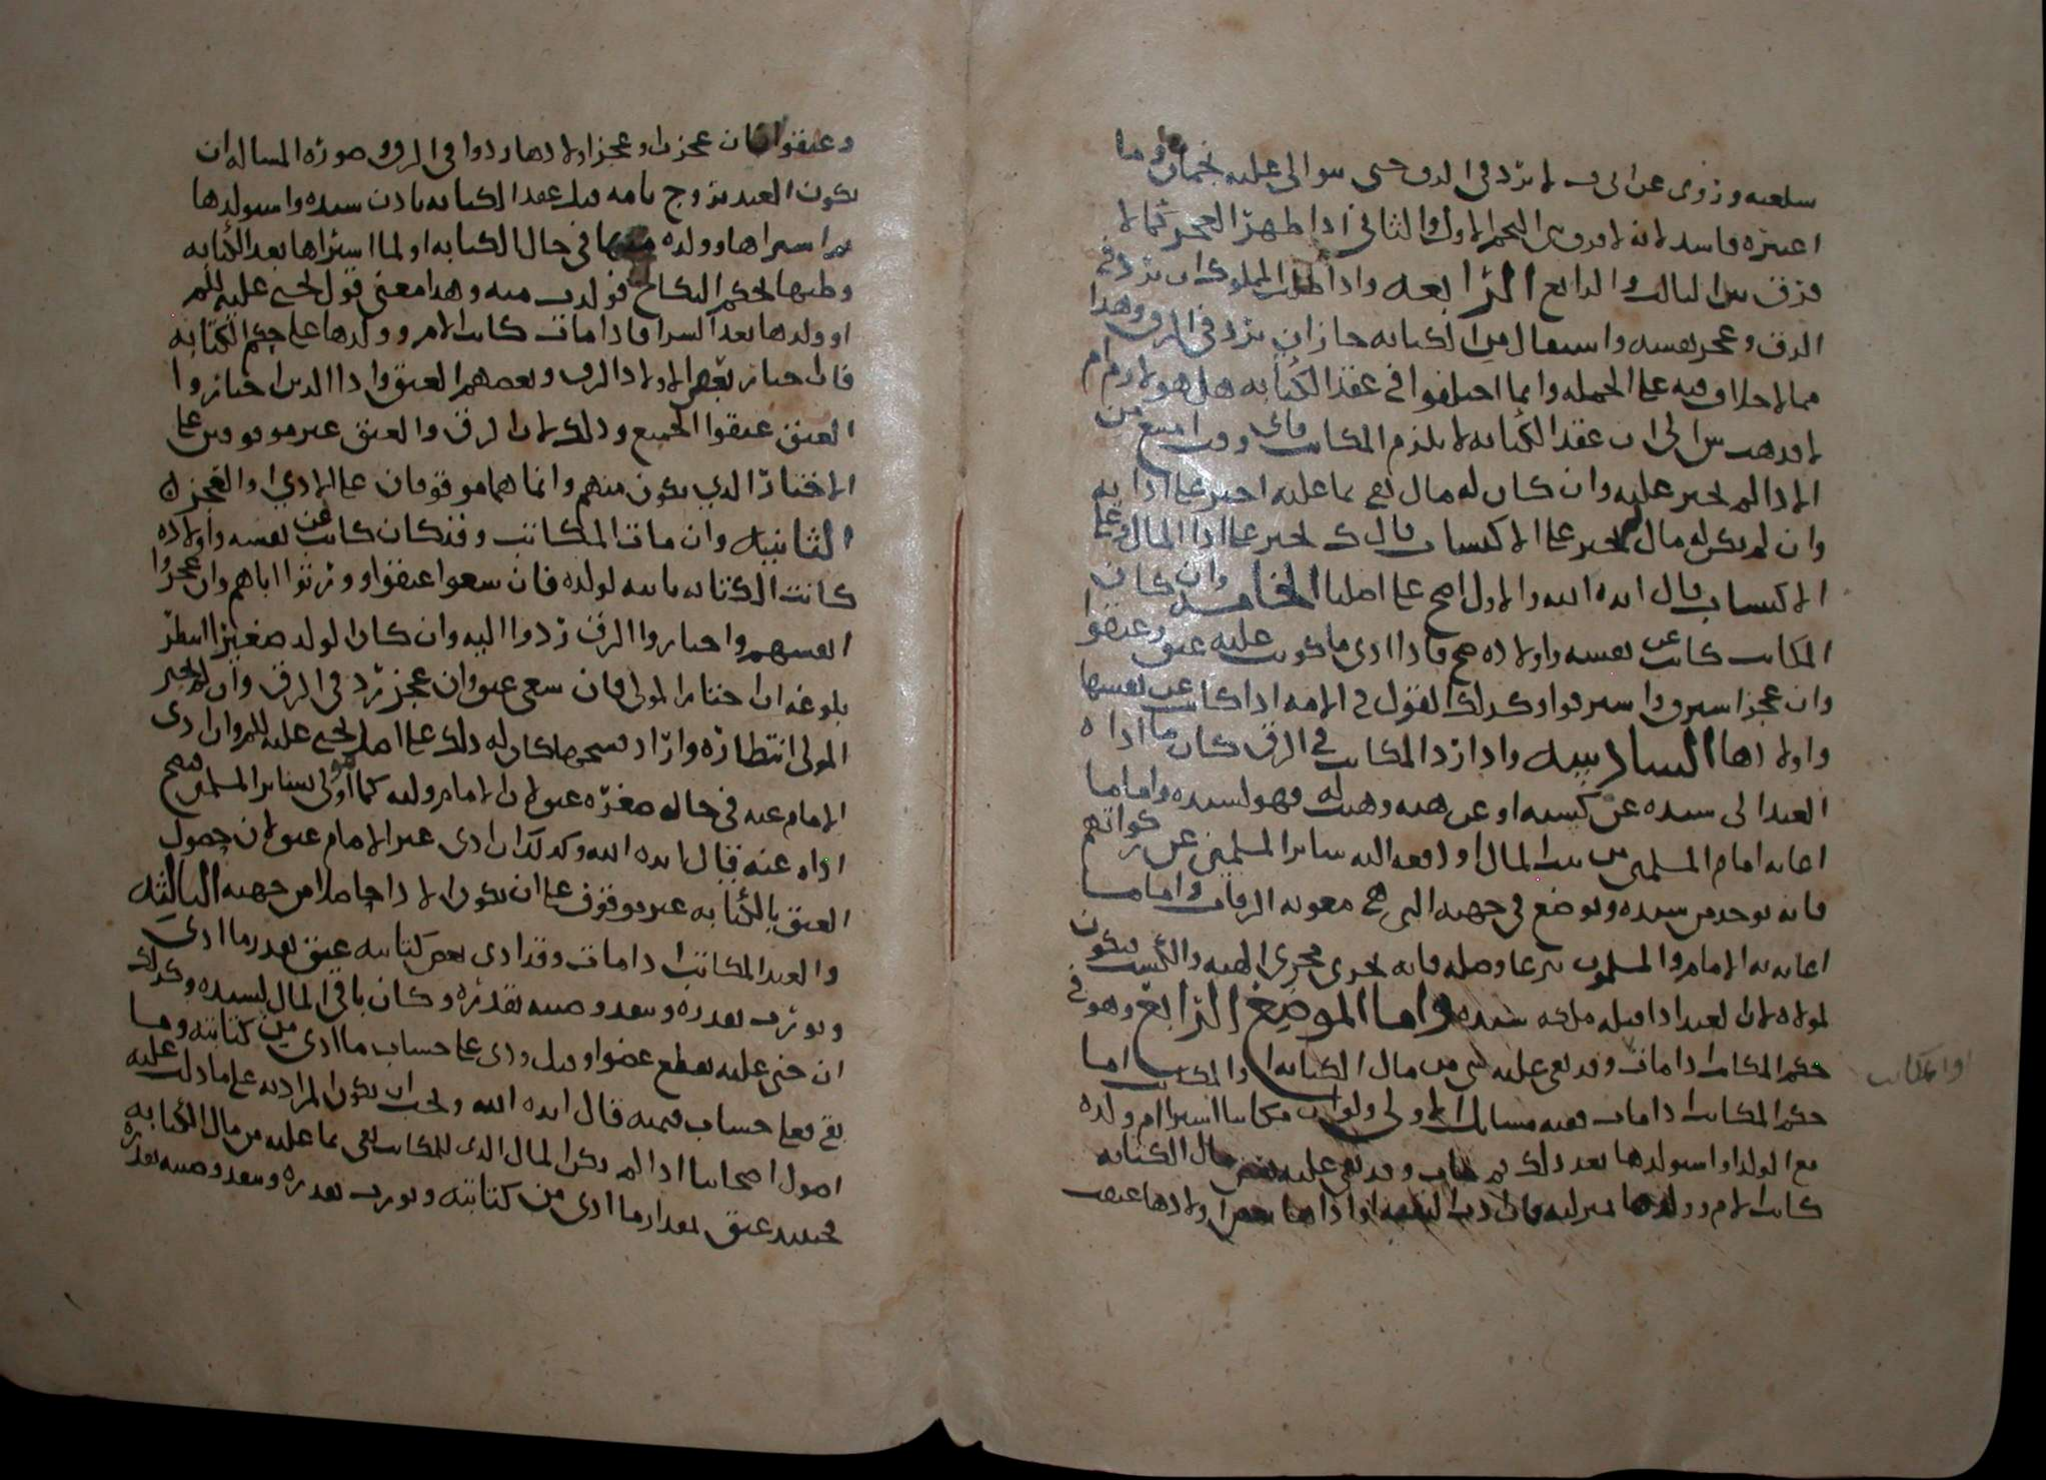 سلعيه وروى عن ابي ف لا يرد في الرق حتى يتوالى عليه نجمان وما
اعتبره فاسد لانه لا فرق بين النجم الاول والثاني اذا ظهر العجز كما لا
فرق بين الثالث والرابع الرابعه واذا طلب المملوك ان يرد في
الرق وعجز نفسه واستقال من الكتابه جاز ان يرد في الرق وهذا
مما لا خلاف فيه على الجمله وانما اختلفوا في عقد الكتابه هل هو لازم ام
لا فذهب ش الى ان عقد الكتابه لا يلزم المكاتب فاي وقت امتنع من
الادا لم يجبر عليه وان كان له مال يفي بما عليه اجبر على ادايه
وان لم يكن له مال لم يجبر على الاكتساب قال ك يجبر على ادا المال وعلى
الاكتساب قال ايده الله والاول اصح على اصلنا الخامسه وان كان
المكاتب كاتب عن نفسه واولاده صح فاذا ادى ما كوتب عليه عتق وعتقوا
وان عجز استرق واسترقوا وكذلك القول في الامه اذا كاتبت عن نفسها
واولادها السادسه واذا رد المكاتب في الرق كان ما اداه
العبد الى سيده عن كسبه او عن هبه وهبت له فهو لسيده واما ما
اعانه امام المسلمين من بيت المال او دفعه اليه سائر المسلمين عن زكواتهم
فانه يوخذ من سيده ويوضع في جهته التي هي معونه الرقاب واما ما
اعانه به الامام والمسلمون تبرعا وصله فانه يجري مجرى الهبه والكسب فيكون
لمولاه لان العبد اذا قبله ملكه سيده واما الموضع الرابع وهو في
حكم المكاتب اذا مات وقد بقي عليه شي من مال الكتابه
حكم المكاتب اذا مات ففيه مسايل الاولى ولو ان مكاتبا اشترا ام ولده
مع الولد او استولدها بعد ذلك ثم مات وقد بقي عليه بعض مال الكتابه
كانت الام وولدها
اوالمكاتب
وعتقوا فان عجزت وعجز اولادها ردوا في الرق وصوره المساله ان
يكون العبد تزوج بامه قبل عقد الكتابه باذن سيده واستولدها
ثم اشتراها وولده منها في حال الكتابه او لما اشتراها بعد الكتابه
وطيها بحكم النكاح فولدت منه وهذا معنى قول يحيى عليه السلم
او ولدها بعد الشرا فاذا مات كانت الام وولدها على حكم الكتابه
فان اختار بعض الاولاد الرق وبعضهم العتق وادا الذين اختاروا
العتق عتقوا الجميع وذلك لان الرق والعتق غير موقوفين على
الاختيار الذي يكون منهم وانما هما موقوفان على الادي والعجز
الثانيه وان مات المكاتب وقد كان كاتب عن نفسه واولاده
كانت الكتابه ثابته لولده فان سعوا عتقوا وورثوا اباهم وان عجزوا
انفسهم واختاروا الرق ردوا اليه وان كان الولد صغيرا انتظر
بلوغه ان اختار المولى فان سعى عتق وان عجز رد في الرق وان لم يختر
المولى انتظاره واراد كان له ذلك على اصل يحيى عليه السلم وان ادى
الامام عنه في حال صغره عتق لان الامام وليه كما هو ولي لساير المسلمين فصح
اداه عنه قال ايده الله وكذلك ان ادى غير الامام عتق لان حصول
العتق بالكتابه غير موقوف على ان يكون الادا حاصلا من جهته الثالثه
والعبد المكاتب اذا مات وقد ادى بعض كتابته عتق بقدر ما ادى
ويورث بقدره وينفذ وصيته بقدره وكان باقي المال لسيده وكذلك
ان جنى عليه بقطع عضو او قتل ودى على حساب ما ادى من كتابته وما
بقي فعلى حساب قيمته قال ايده الله ويجب ان يكون المراد به على ما دلت عليه
اصول اصحابنا اذا لم يكن المال الذي للمكاتب يفي بما عليه من مال الكتابه
فحينئذ عتق بمقدار ما ادى من كتابته ويورث بقدره وينفذ وصيته بقدره